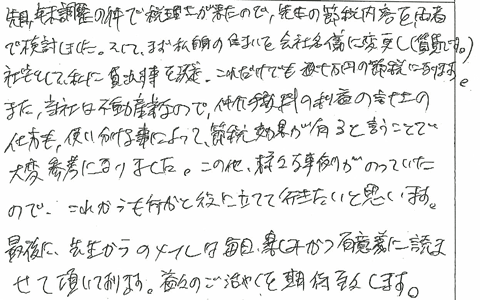 先日、年末調整の件で税理士が来たので、先生の節税内容を両者
で検討しました。そして、まず私名の住まいを会社名義に変更し(賃貸です。)
社宅として、私に貸す事を決定。これだけでも数十万円の節税になります。
また、当社は不動産業なので、仲介手数料の利益の計上の
仕方も、使い分ける事によって、節税効果が有ると言うことで
大変参考になりました。この他、様々な事例がのっていた
ので、これからも何かと役に立てて行きたいと思います。
最後に、先生からのメイルは毎日、楽しみかつ有意義に読ま
せて頂いております。益々のご活やくを期待致します。